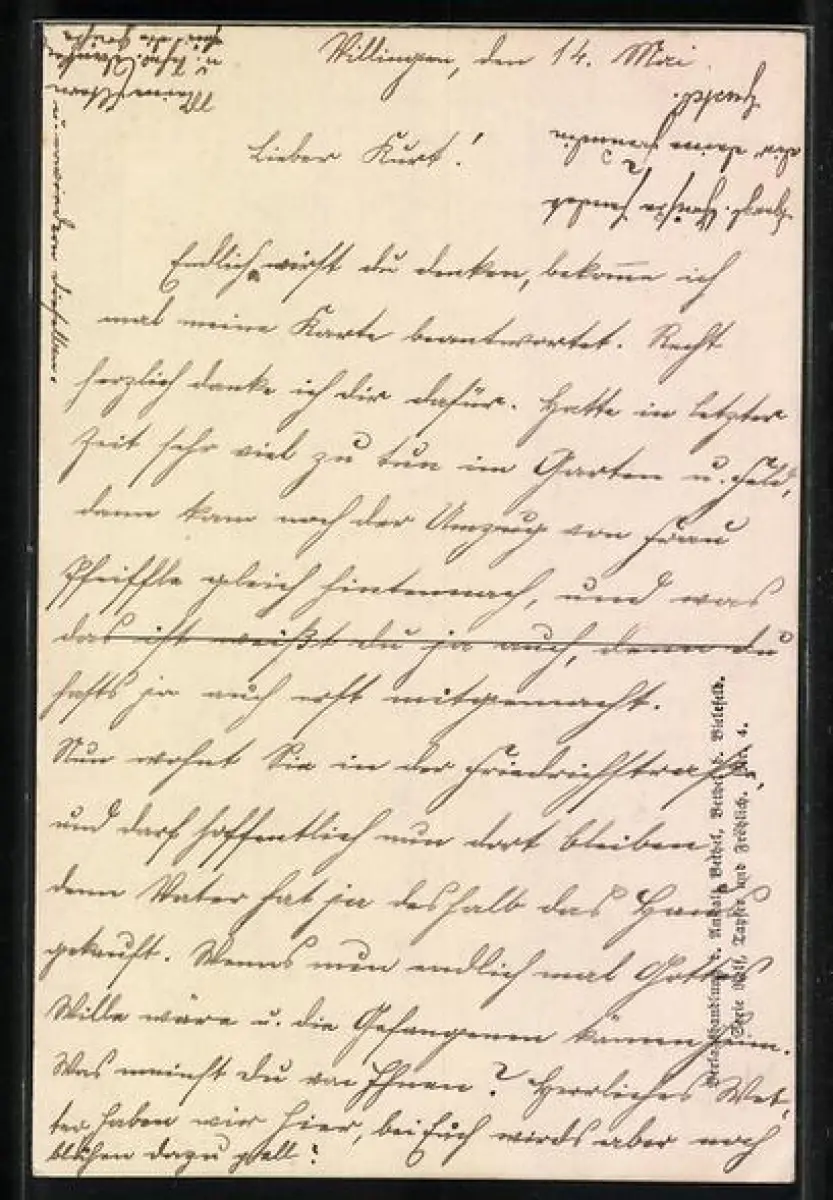 Villingen, den 14. Mai
Lieber Kurt!
Endlich wirst du denken, bekomme ich
mal meine Karte beantwortet. Recht
herzlich danke ich dir dafür. Hatte in letzter
Zeit sehr viel zu tun im Garten u. Feld,
dann kam noch der Umzug von Frau
Pfeiffle gleich hintennach, und was
das ist weißt du ja auch, denn du
hasts ja auch erst mitgemacht.
Nun wohnt Sie in der Friedrichstraße,
und darf hoffentlich nun dort bleiben
denn Vater hat ja deshalb das Haus
gekauft. Wenns nun endlich mal Gottes
Wille wäre u. die Gefangenen kämen heim.
Was meinst du von Ihnen? Herrliches Wet-
ter haben wir hier, bei Euch wirds aber noch
blühen dazu gell?
Herzl. Grüße sendet
dir deine Freundin
Meine Eltern
u. erwiedern dieselben.
Verlagshandlung d. Anstalt Bethel, Bethel b. Bielefeld.
Serie Rolf, Tapfer und Fröhlich. Nr. 4.